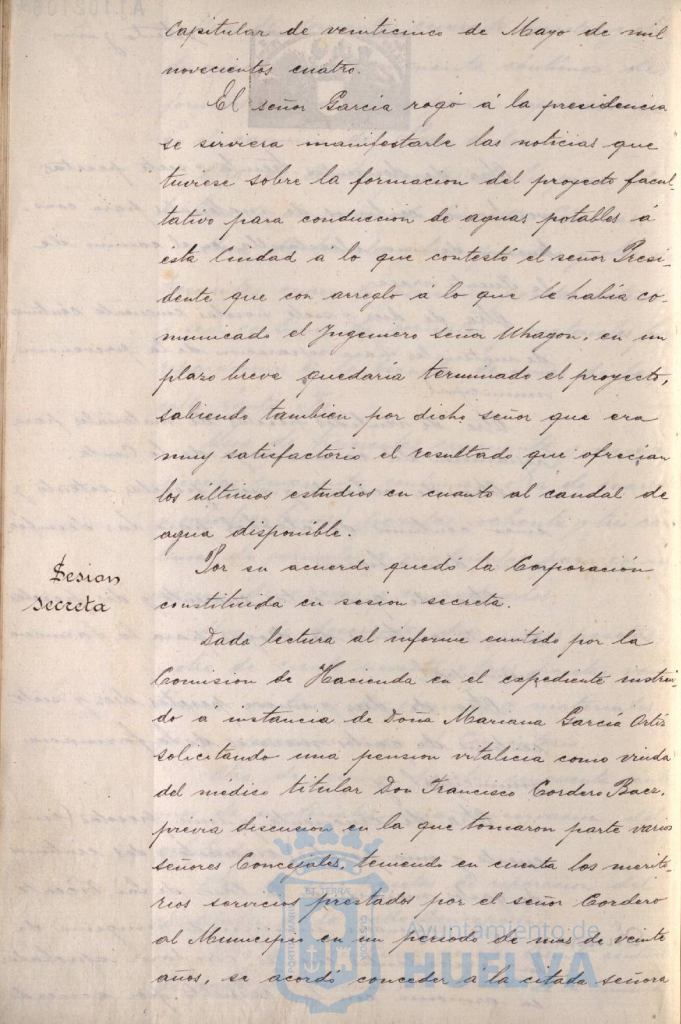 Capitular de veinticinco de Mayo de mil
novecientos cuatro.
El señor García rogó á la presidencia
se sirviera manifestarle las noticias que
tuviese sobre la formacion del proyecto facul-
tativo para conduccion de aguas potables á
esta Ciudad á lo que contestó el señor Presi-
dente que con arreglo á lo que le había co-
municado el Ingeniero señor Uhagon, en un
plazo breve quedaría terminado el proyecto,
sabiendo tambien por dicho señor que era
muy satisfactorio el resultado que ofrecian
los ultimos estudios en cuanto al caudal de
agua disponible.
Sesion
secreta
Por su acuerdo quedó la Corporación
constituida en sesion secreta.
Dada lectura al informe emitido por la
Comision de Hacienda en el expediente instrui-
do á instancia de Doña Mariana García Ortiz
solicitando una pension vitalicia como viuda
del médico titular Don Francisco Cordero Baez,
previa discusion en la que tomaron parte varios
señores Concejales, teniendo en cuenta los merito-
rios servicios prestados por el señor Cordero
al Municipio en un periodo de mas de veinte
años, se acordó conceder á la citada señora
Ayuntamiento de
HUELVA